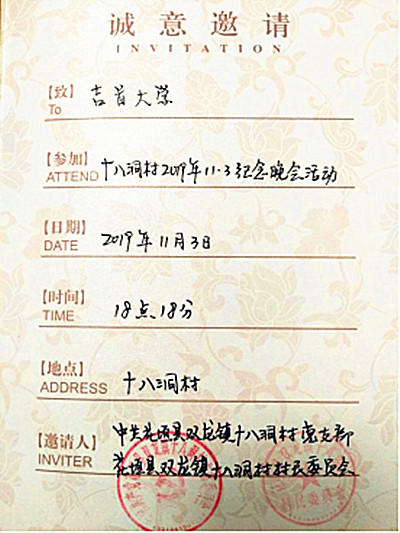 诚意邀请
INVITATION
【致】 吉首大学
To
【参加】 十八洞村2019年11·3纪念晚会活动
ATTEND
【日期】 2019年11月3日
DATE
【时间】 18点18分
TIME
【地点】 十八洞村
ADDRESS
【邀请人】 中共花垣县双龙镇十八洞村党支部
INVITER 花垣县双龙镇十八洞村村民委员会